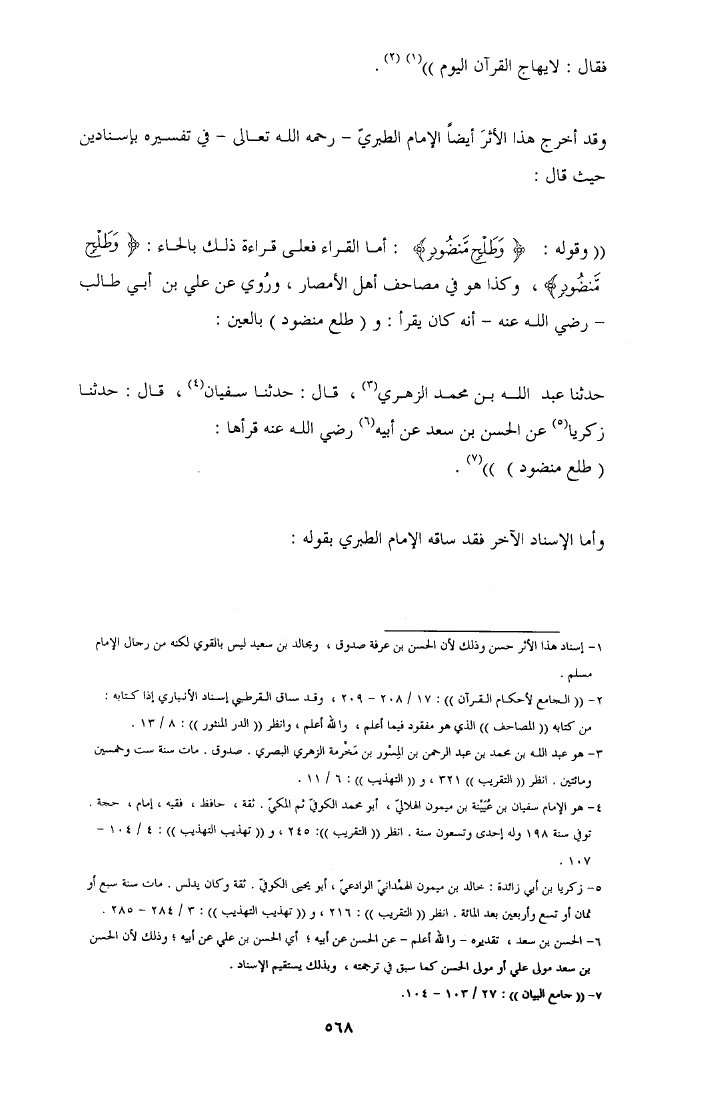 فقال : لايهاج القرآن اليوم ))(١) (٢) .
وقد أخرج هذا الأثرَ أيضاً الإمام الطبريّ – رحمه الله تعالى – في تفسيره بإسنادين
حيث قال :
(( وقوله : ﴿ وَطَلْحٍ مَّنضُودٍ﴾ : أما القراء فعلى قراءة ذلك بالحاء : ﴿ وَطَلْحٍ
مَّنضُودٍ﴾ ، وكذا هو في مصاحف أهل الأمصار ، ورُوي عن علي بن أبي طالب
– رضي الله عنه – أنه كان يقرأ : و ( طلع منضود ) بالعين :
حدثنا عبد الله بن محمد الزهري(٣) ، قال : حدثنا سفيان(٤) ، قال : حدثنا
زكريا(٥) عن الحسن بن سعد عن أبيه(٦) رضي الله عنه قرأها :
( طلع منضود ) ))(٧) .
وأما الإسناد الآخر فقد ساقه الإمام الطبري بقوله :
١– إسناد هذا الأثر حسن وذلك لأن الحسن بن عرفة صدوق ، ومجالد بن سعيد ليس بالقوي لكنه من رجال الإمام
مسلم .
٢– (( الجامع لأحكام القرآن )) : ١٧ / ٢٠٨ – ٢٠٩ ، وقد ساق القرطبي إسناد الأنباري إذا كتابه :
من كتابه (( المصاحف )) الذي هو مفقود فيما أعلم ، والله أعلم ، وانظر (( الدر المنثور )) : ٨ / ١٣ .
٣– هو عبد الله بن محمد بن عبد الرحمن بن المِسْوَر بن مَخْرمة الزهري البصري . صدوق . مات سنة ست وخمسين
ومائتين . انظر (( التقريب )) ٣٢١ ، و (( التهذيب )) : ٦ / ١١ .
٤– هو الإمام سفيان بن عُيَيْنة بن ميمون الهلاليّ ، أبو محمد الكوفيّ ثم المكيّ . ثقة ، حافظ ، فقيه ، إمام ، حجة .
توفي سنة ١٩٨ وله إحدى وتسعون سنة . انظر (( التقريب )): ٢٤٥ ، و (( تهذيب التهذيب )) : ٤ / ١٠٤ –
١٠٧ .
٥– زكريا بن أبي زائدة : خالد بن ميمون الهمْدانيّ الوادعيّ ، أبو يحيى الكوفيّ . ثقة وكان يدلس . مات سنة سبع أو
ثمان أو تسع وأربعين بعد المائة . انظر (( التقريب )) : ٢١٦ ، و (( تهذيب التهذيب )) : ٣ / ٢٨٤ – ٢٨٥ .
٦– الحسن بن سعد ، تقديره – والله أعلم – عن الحسن عن أبيه ؛ أي الحسن بن علي عن أبيه ؛ وذلك لأن الحسن
بن سعد مولى علي أو مولى الحسن كما سبق في ترجمته ، وبذلك يستقيم الإسناد .
٧– (( جامع البيان )) : ٢٧ / ١٠٣ – ١٠٤.
٥٦٨